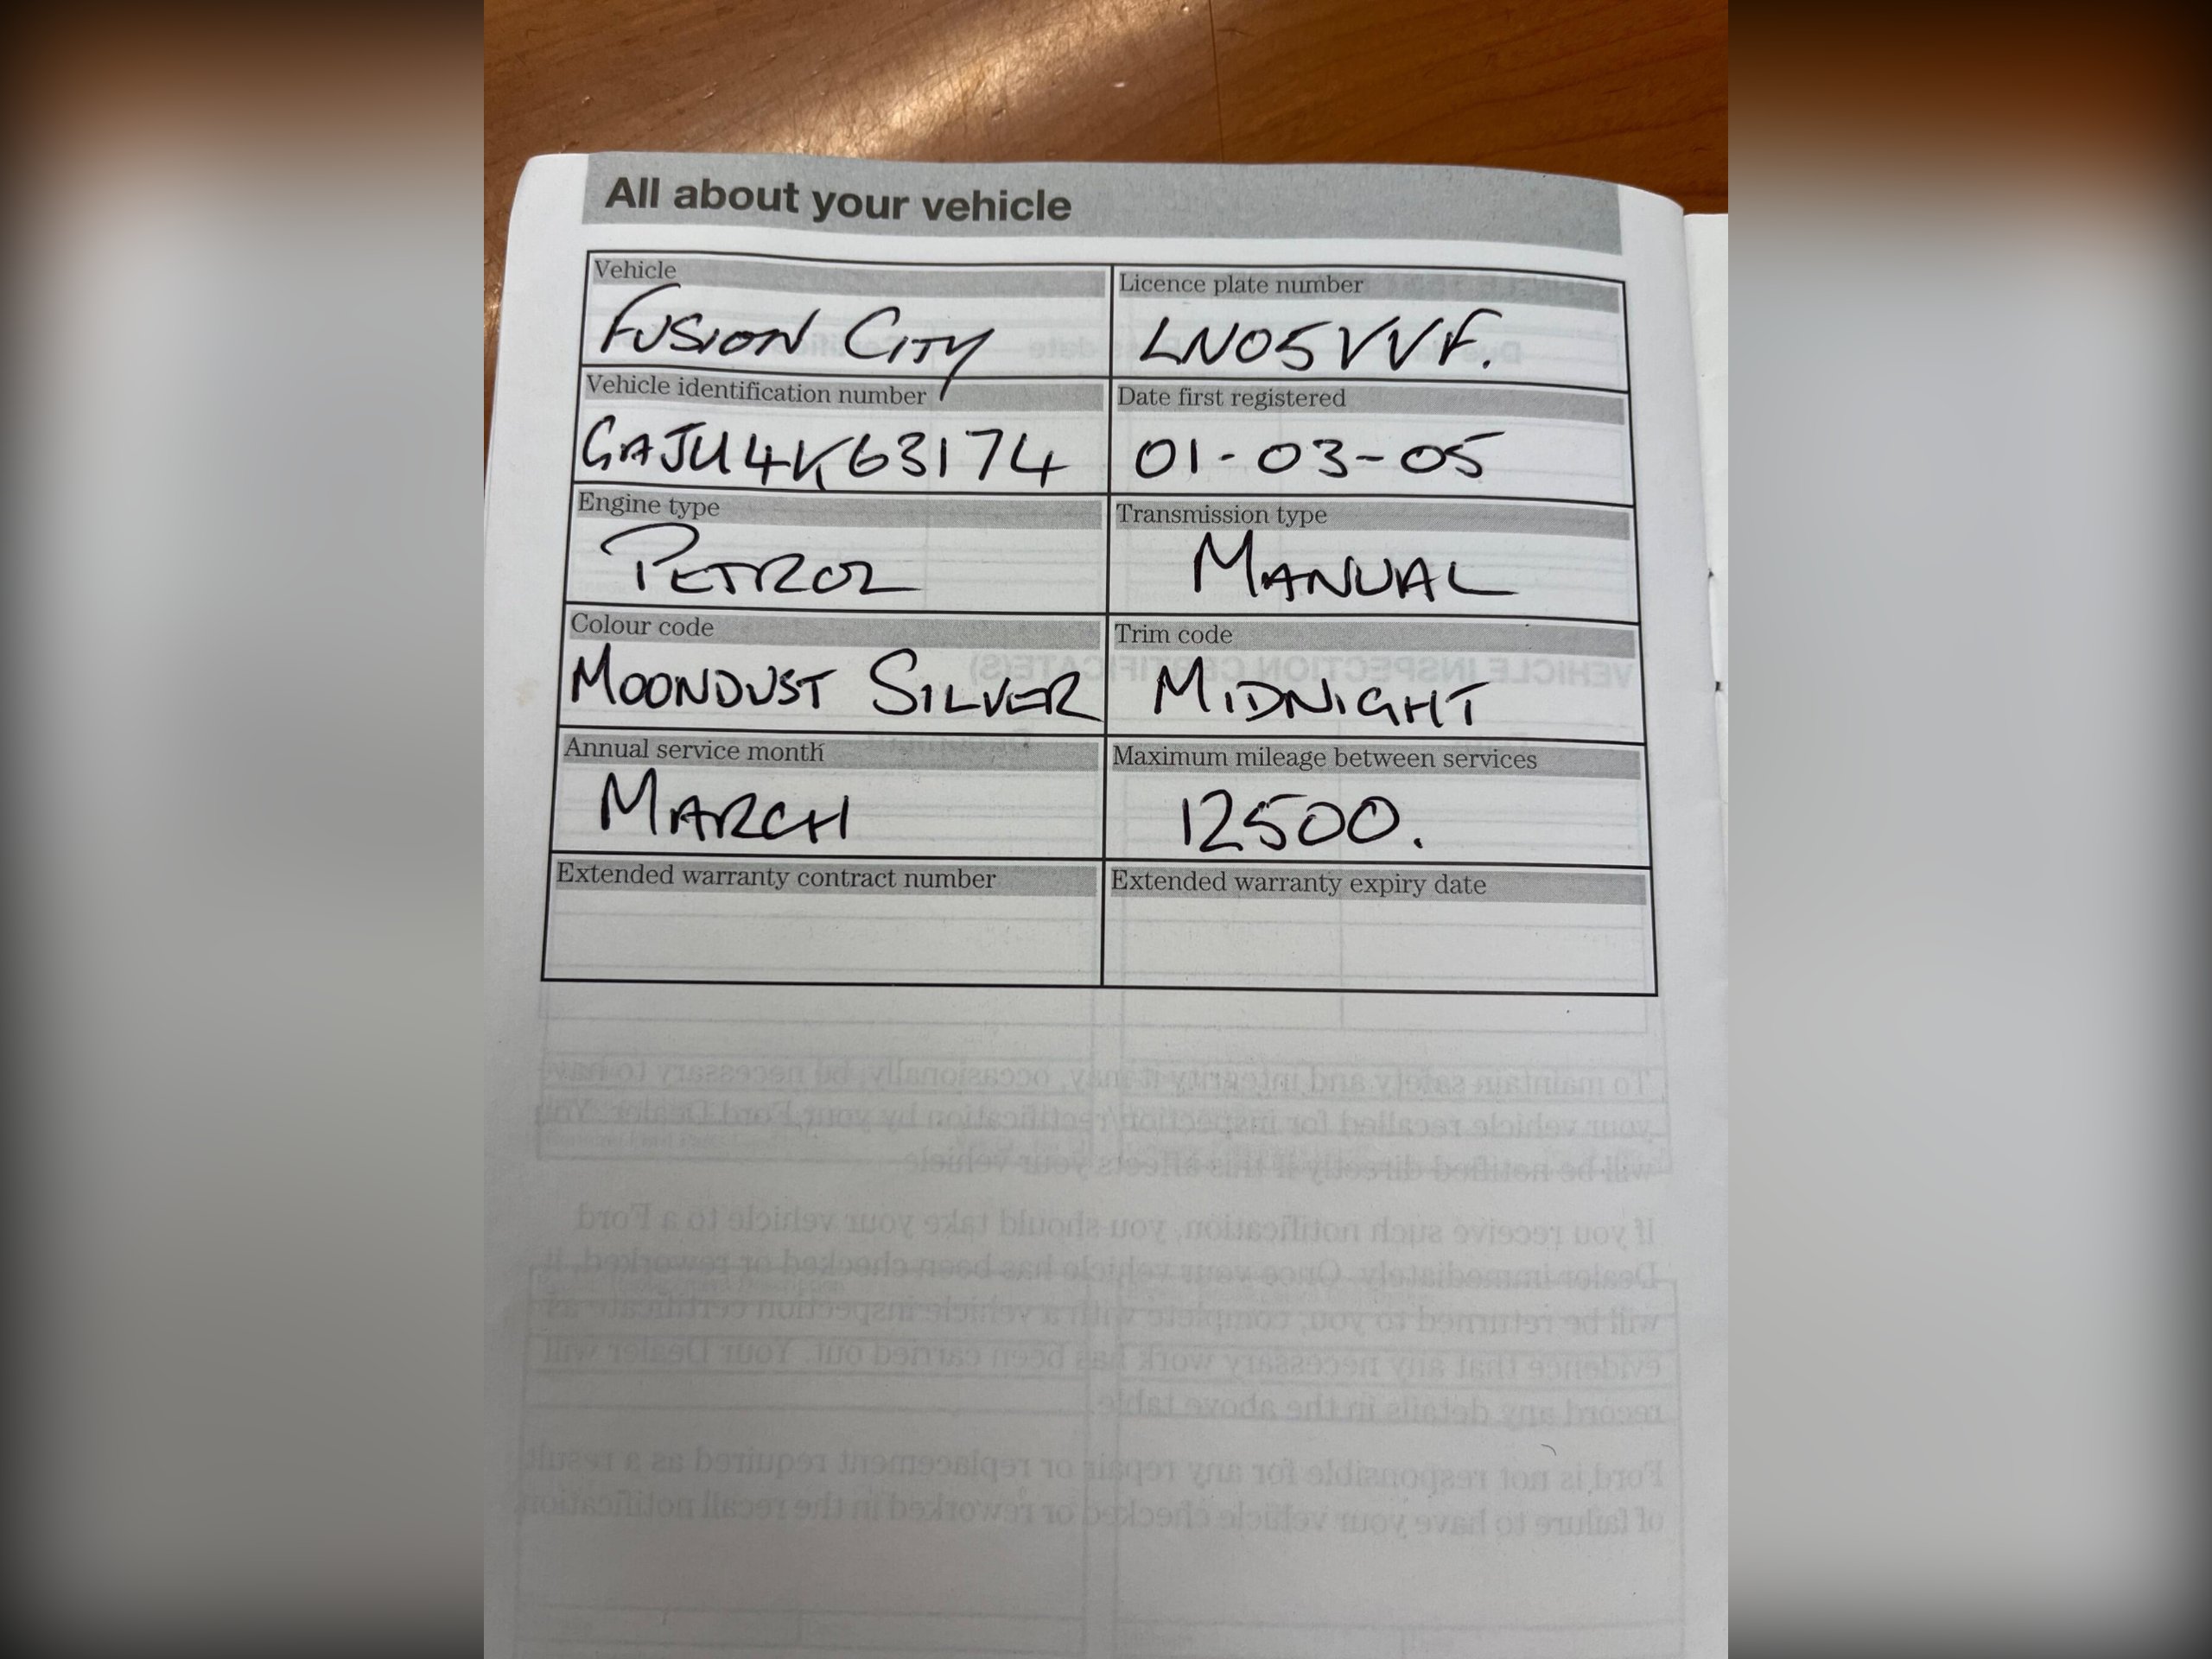 All about your vehicle
Vehicle
FUSION CITY
Licence plate number
LN05VVF.
Vehicle identification number
GAJU4K63174
Date first registered
01-03-05
Engine type
PETROL
Transmission type
MANUAL
Colour code
MOONDUST SILVER
Trim code
MIDNIGHT
Annual service month
MARCH
Maximum mileage between services
12500.
Extended warranty contract number
Extended warranty expiry date